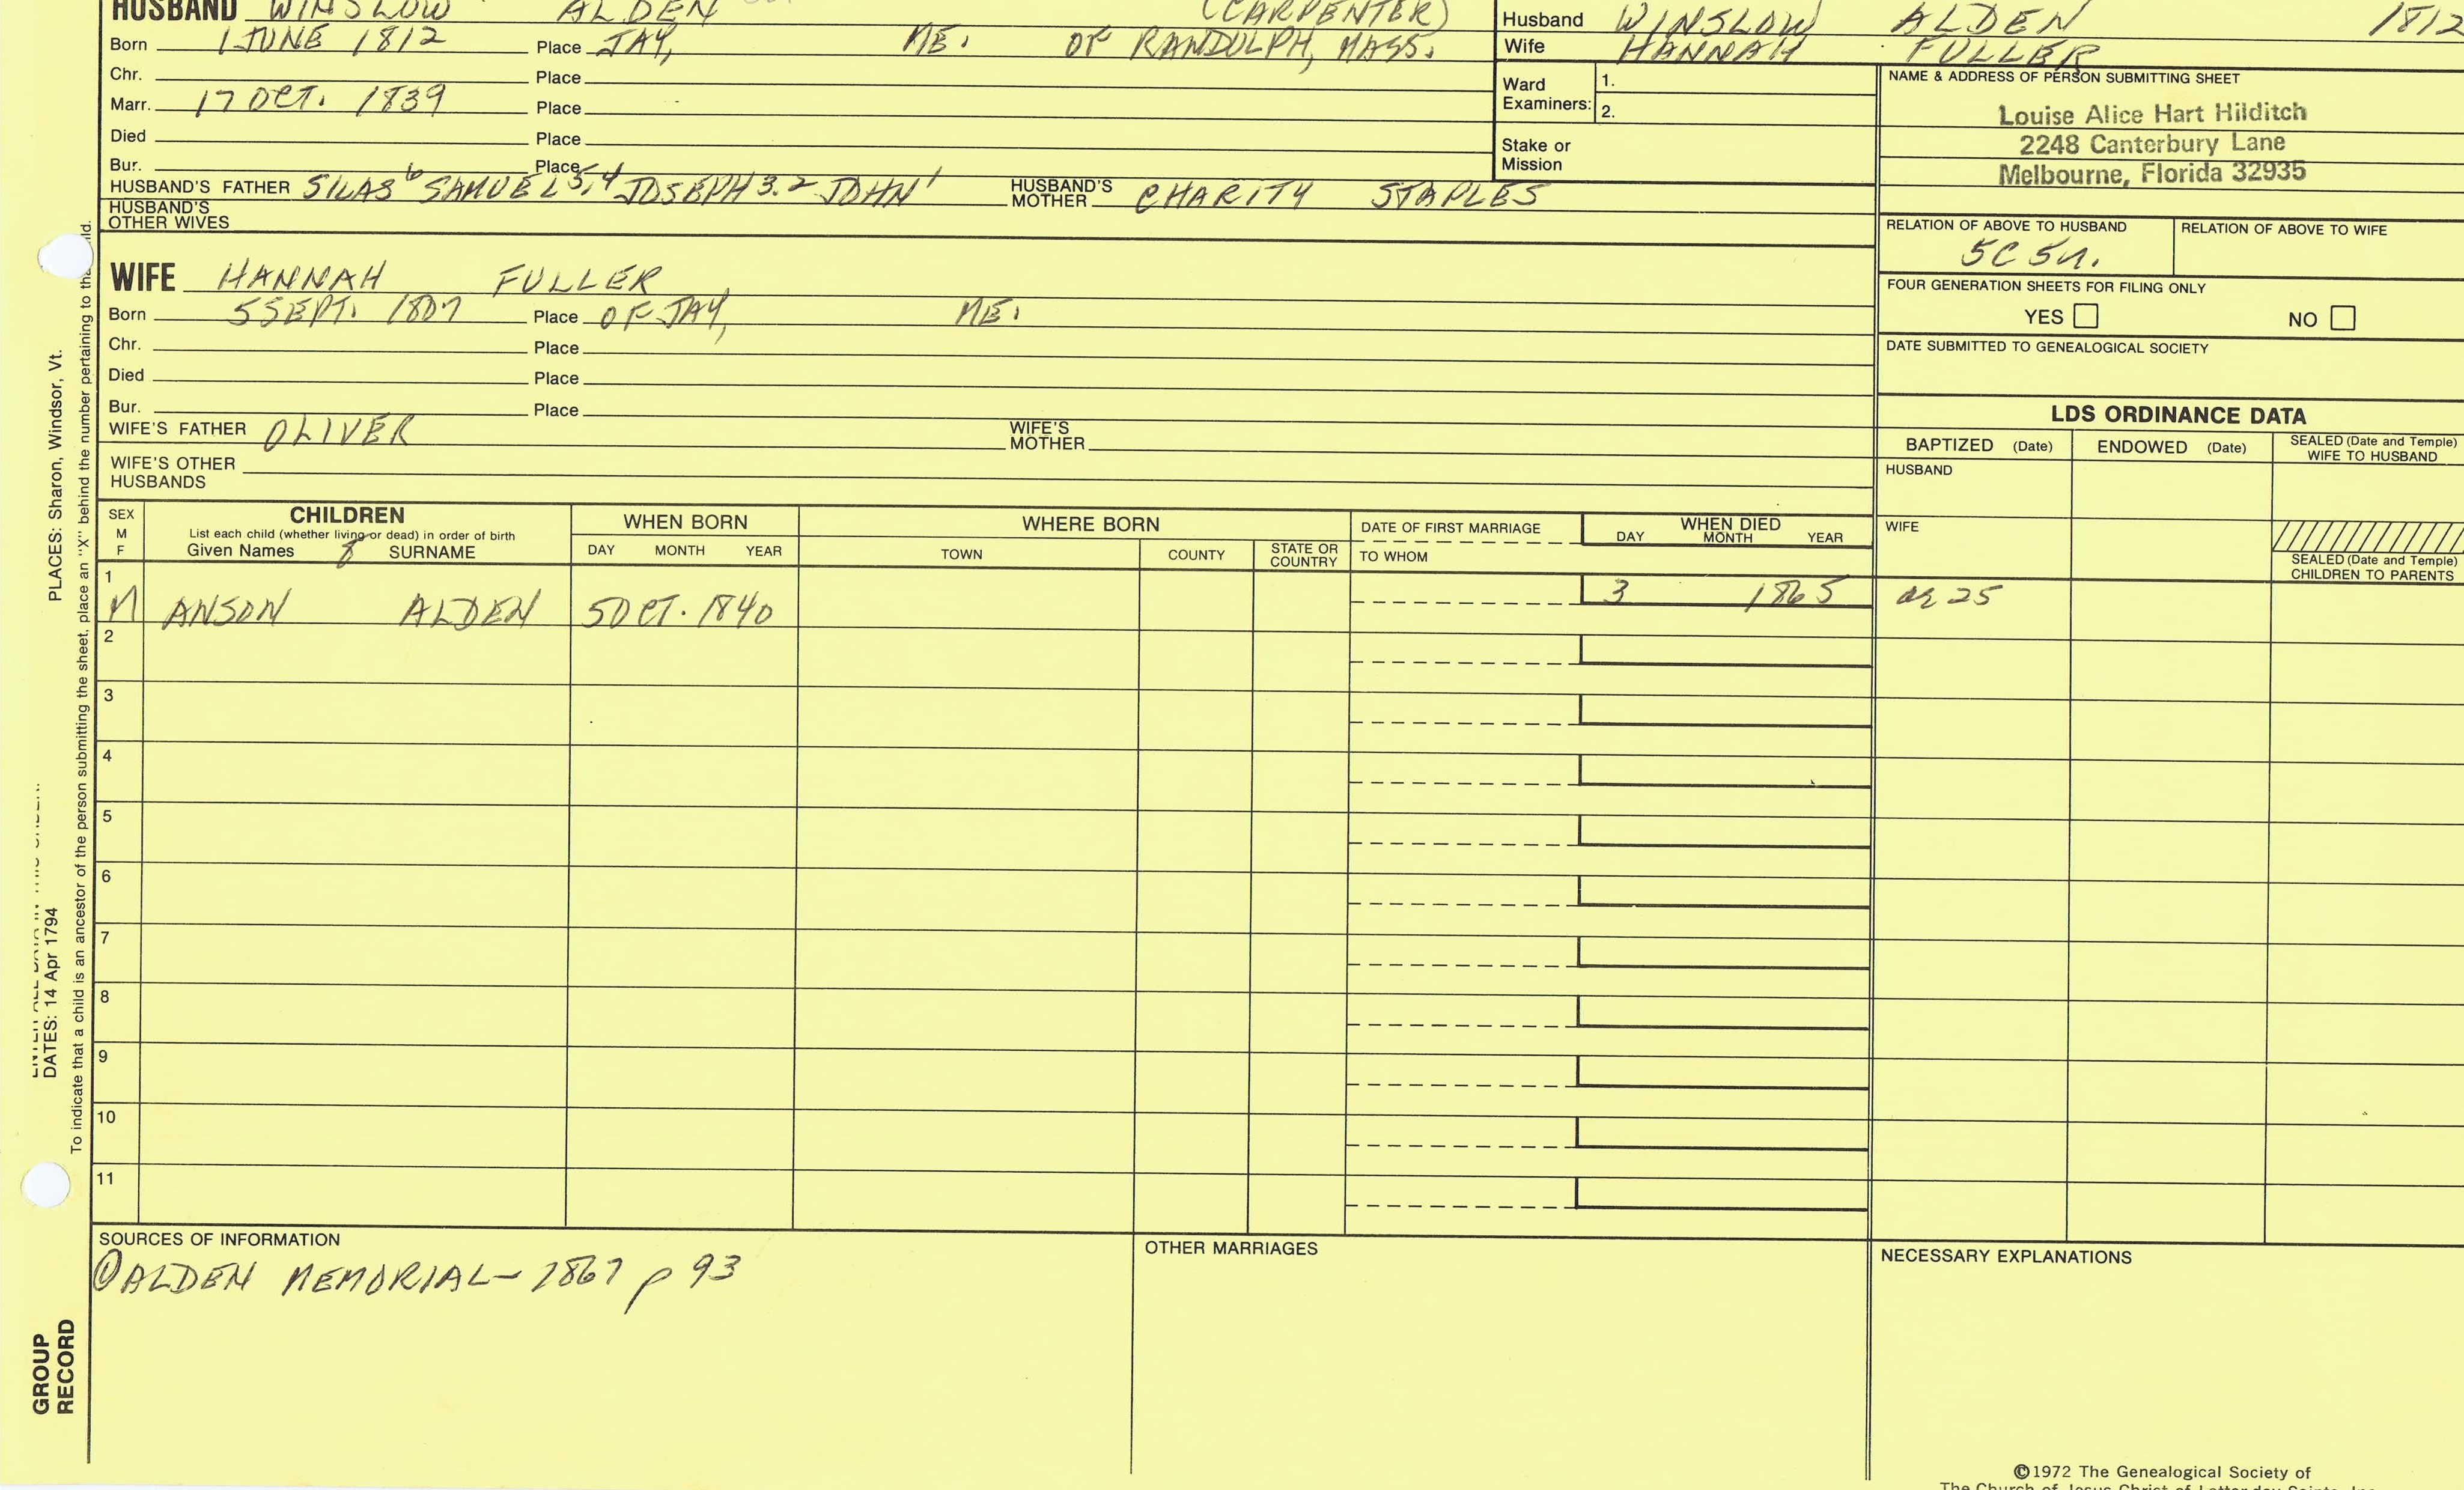 HUSBAND WINSLOW ALDEN (CARPENTER)
Born 1 JUNE 1812 Place JAY, ME. OF RANDOLPH, MASS.
Chr. Place
Marr. 17 OCT. 1839 Place
Died Place
Bur. Place
HUSBAND'S FATHER SILAS6 SAMUEL5,4 JOSEPH3.2 JOHN1 HUSBAND'S MOTHER CHARITY STAPLES
HUSBAND'S OTHER WIVES
Husband WINSLOW ALDEN 1812
Wife HANNAH FULLER
Ward Examiners: 1.
2.
Stake or Mission
NAME & ADDRESS OF PERSON SUBMITTING SHEET
Louise Alice Hart Hilditch
2248 Canterbury Lane
Melbourne, Florida 32935
RELATION OF ABOVE TO HUSBAND RELATION OF ABOVE TO WIFE
5C 5r.
FOUR GENERATION SHEETS FOR FILING ONLY
YES NO
DATE SUBMITTED TO GENEALOGICAL SOCIETY
WIFE HANNAH FULLER
Born 5 SEPT. 1807 Place OF JAY, ME.
Chr. Place
Died Place
Bur. Place
WIFE'S FATHER OLIVER WIFE'S MOTHER
WIFE'S OTHER HUSBANDS
LDS ORDINANCE DATA
BAPTIZED (Date) ENDOWED (Date) SEALED (Date and Temple) WIFE TO HUSBAND
HUSBAND
WIFE
SEALED (Date and Temple) CHILDREN TO PARENTS
SEX M F
CHILDREN
List each child (whether living or dead) in order of birth
Given Names 8 SURNAME
WHEN BORN
DAY MONTH YEAR
WHERE BORN
TOWN COUNTY STATE OR COUNTRY
DATE OF FIRST MARRIAGE
TO WHOM
WHEN DIED
DAY MONTH YEAR
1
M ANSON ALDEN 5 OCT. 1840 3 1865 ae 25
2
3
4
5
6
7
8
9
10
11
SOURCES OF INFORMATION
① ALDEN MEMORIAL - 1867 p 93
OTHER MARRIAGES
NECESSARY EXPLANATIONS
©1972 The Genealogical Society of
The Church of Jesus Christ of Latter-day Saints, Inc.
PLACES: Sharon, Windsor, Vt.
DATES: 14 Apr 1794
To indicate that a child is an ancestor of the person submitting the sheet, place an "X" behind the number pertaining to that child.
GROUP
RECORD